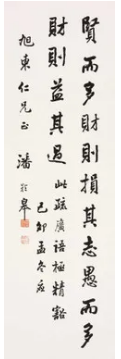 賢而多財則損其志愚而多
財則益其過
此疏廣語極精豁
己卯孟冬應
旭東仁兄正
潘齡皋